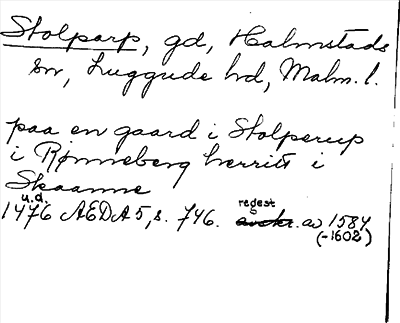 Stolparp, gd, Halmstads
sn, Luggude hd, Malm. l.
paa en gaard i Stolperup
i Rønneberg herrits i
Skaanne
u.d.
1476 AEDA 5, s. 746. regest av 1584
(-1602)